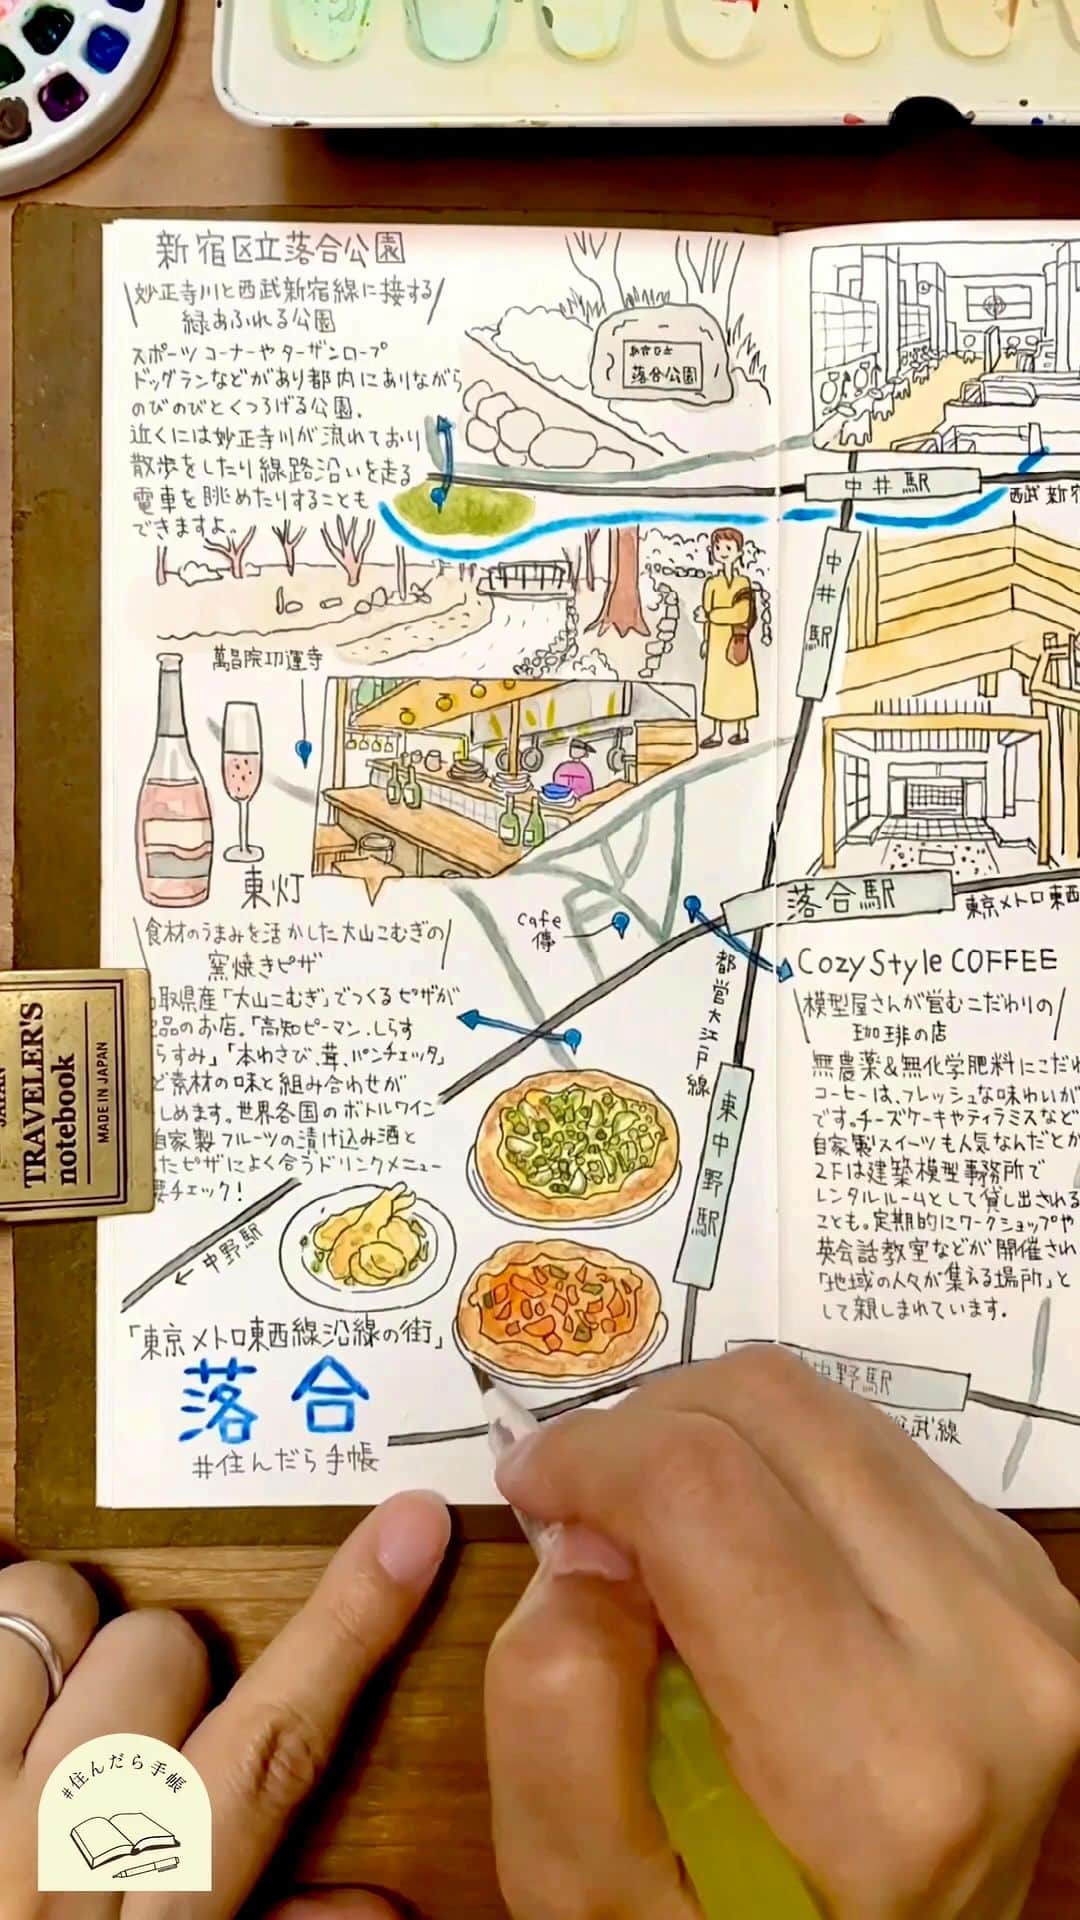 新宿区立落合公園
妙正寺川と西武新宿線に接する
緑あふれる公園
スポーツコーナーやターザンロープ
ドッグランなどがあり都内にありながら
のびのびとくつろげる公園.
近くには妙正寺川が流れており
散歩をしたり線路沿いを走る
電車を眺めたりすることも
できますよ。
落合公園
中井駅
西武新宿
中井駅
萬昌院功運寺
東灯
食材のうまみを活かした大山こむぎの
窯焼きピザ
取県産「大山こむぎ」でつくるピザが
品のお店.「高知ピーマン.しらす
らすみ」「本わさび、茸、パンチェッタ」
ど素材の味と組み合わせが
しめます。世界各国のボトルワイン
自家製フルーツの漬け込み酒と
たピザによく合うドリンクメニュー
チェック!
cafe
傳
落合駅
東京メトロ東西
都営大江戸線
東中野駅
←中野駅
Cozy Style COFFEE
模型屋さんが営むこだわりの
珈琲の店
無農薬&無化学肥料にこだわ
コーヒーは、フレッシュな味わいが
です。チーズケーキやティラミスなど
自家製スイーツも人気なんだとか
2Fは建築模型事務所で
レンタルルームとして貸し出される
ことも。定期的にワークショップや
英会話教室などが開催され
「地域の人々が集える場所」と
して親しまれています.
「東京メトロ東西線沿線の街」
落合
#住んだら手帳
中野駅
武線
TRAVELER'S
notebook
MADE IN JAPAN
#住んだら手帳